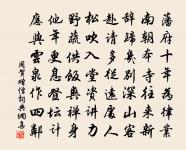 藩府十年為律業
南朝本寺往來新
辭歸幾別深山客
赴請多從遠處人
松吹入堂資講力
野蔬供飯爽禪身
他年更息登壇計
應與雲泉作四鄰
周賀贈僧詞典網書